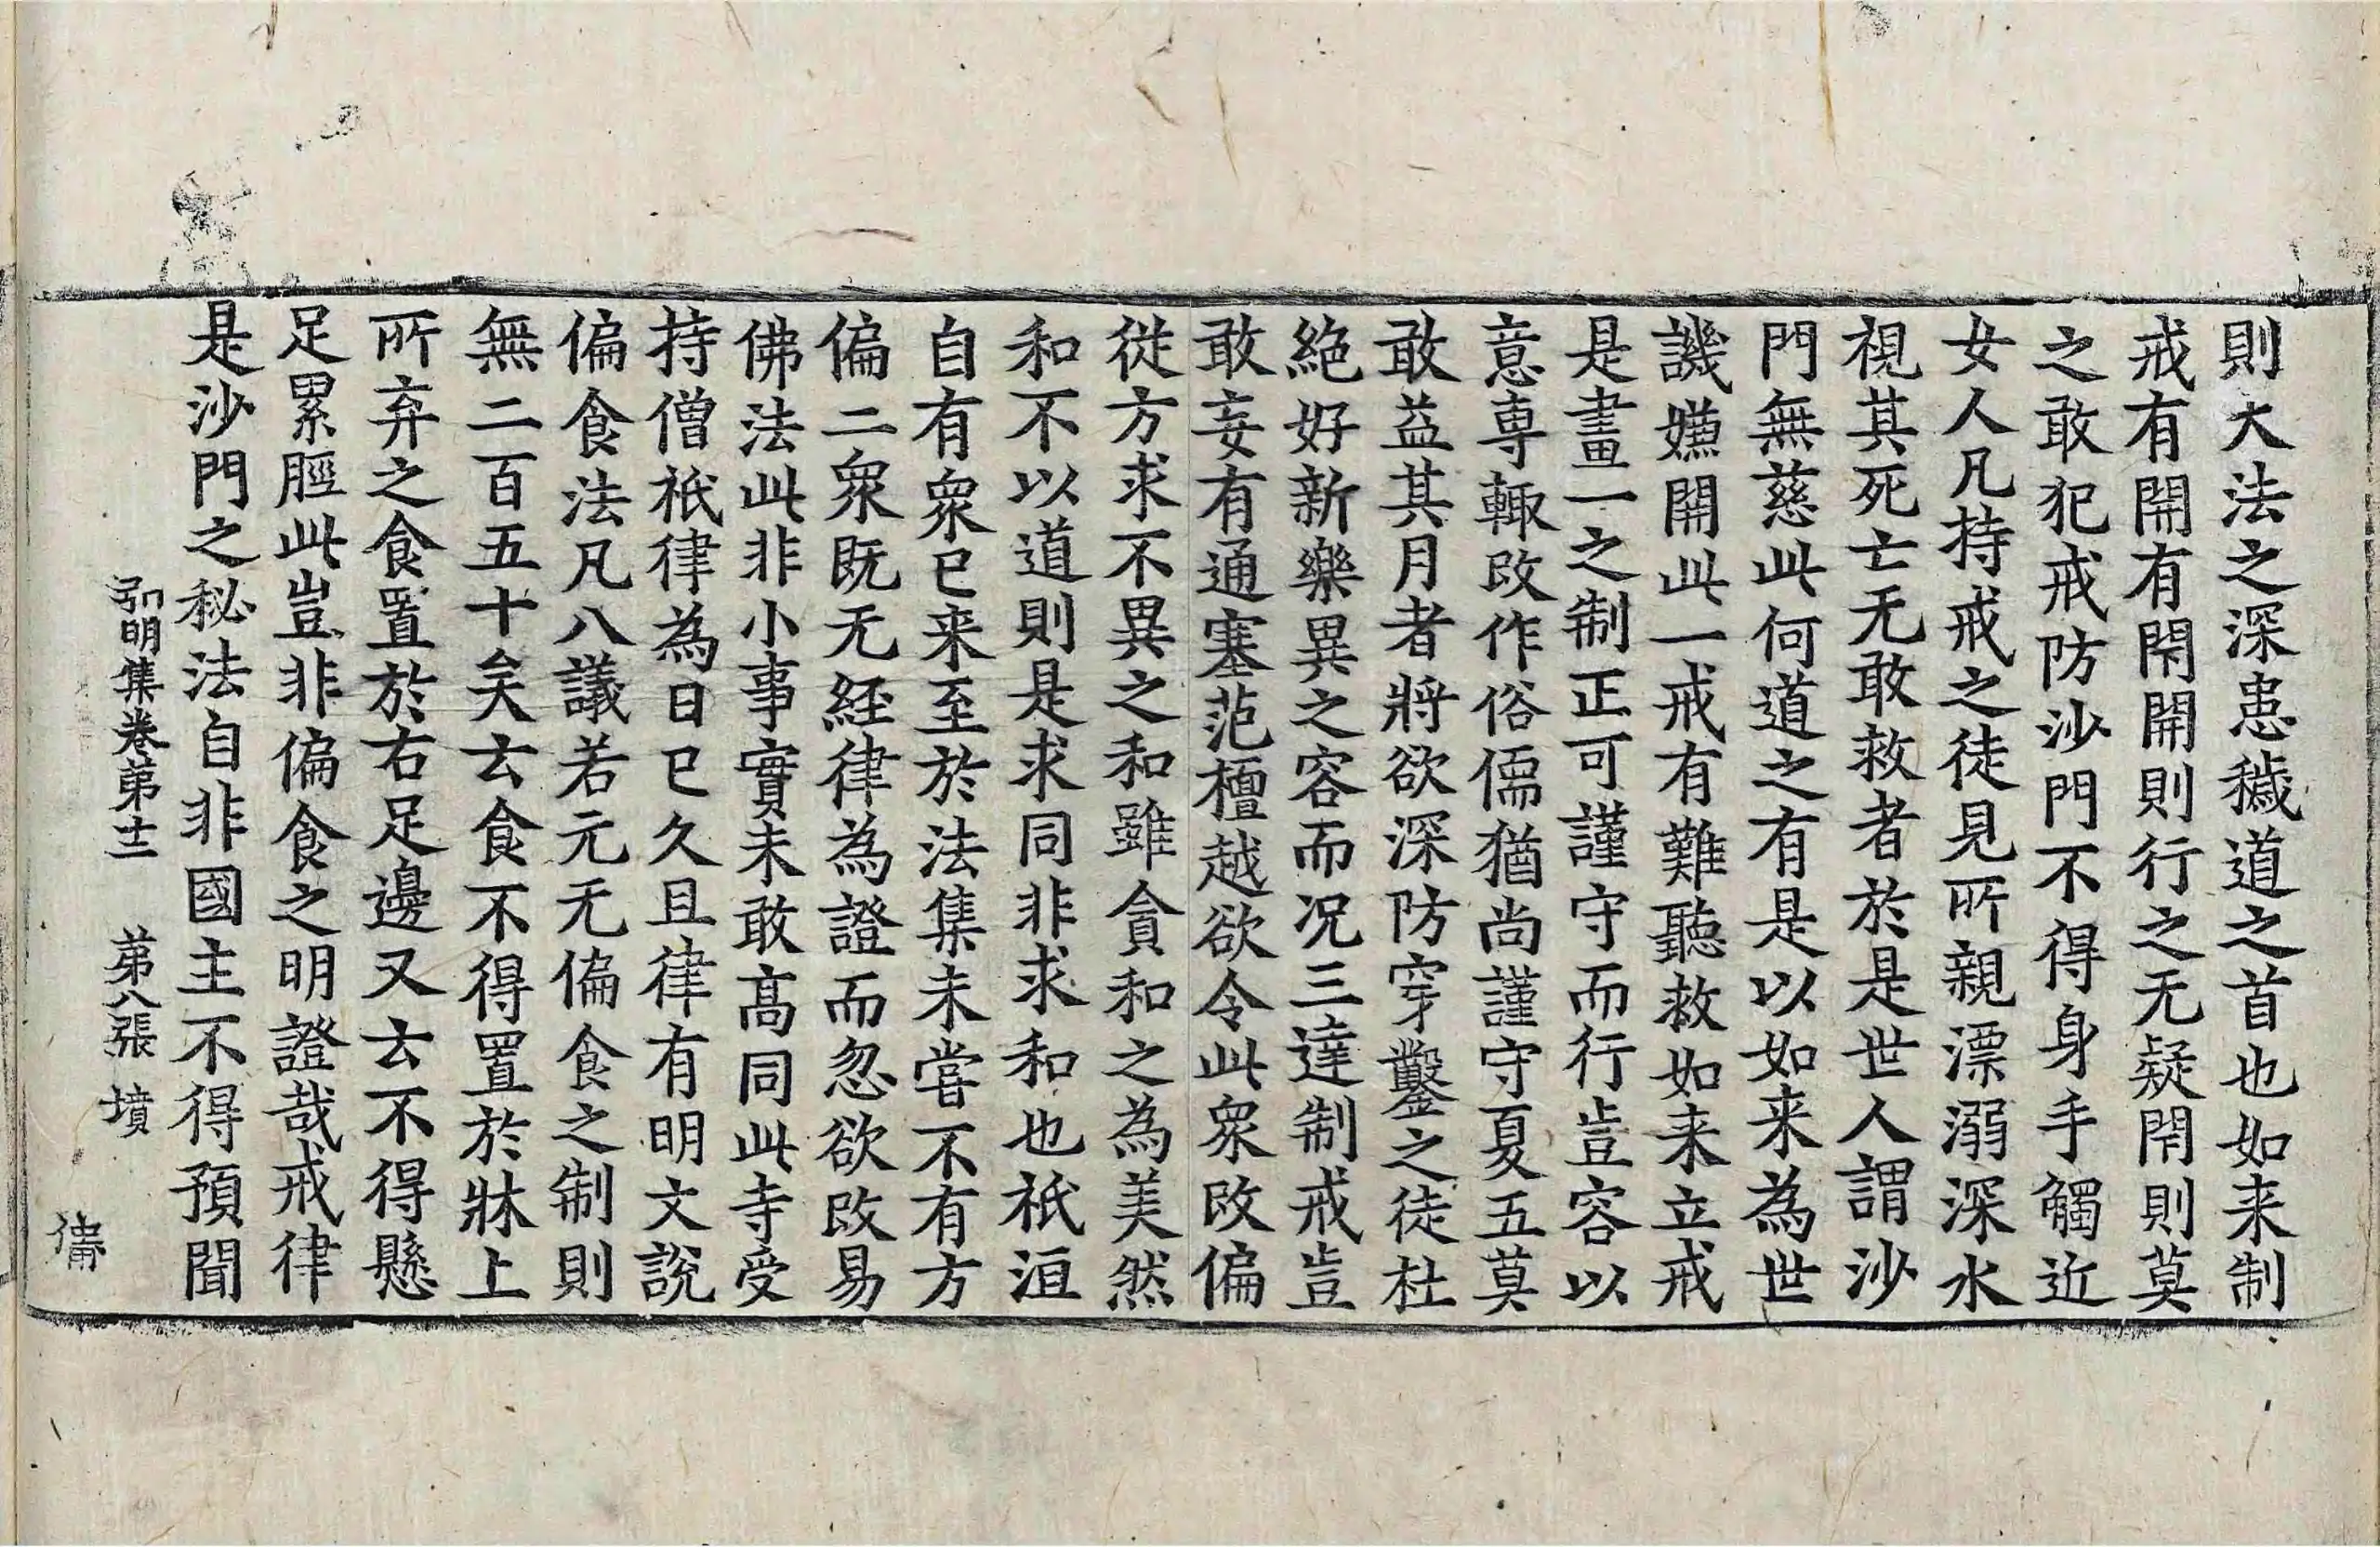 則大法之深患穢道之首也如来制
戒有開有閇開則行之无疑閇則莫
之敢犯戒防沙門不得身手觸近
女人凡持戒之徒見所親漂溺深水
視其死亡无敢救者於是世人謂沙
門無慈此何道之有是以如来為世
譏嫌開此一戒有難聽救如来立戒
是畫一之制正可謹守而行豈容以
意専輙改作俗儒猶尚謹守夏五莫
敢益其月者將欲深防穿鑿之徒杜
絶好新樂異之容而况三達制戒豈
敢妄有通塞范檀越欲令此衆改偏
從方求不異之和雖貪和之為美然
和不以道則是求同非求和也祇洹
自有衆已来至於法集未嘗不有方
偏二衆既无経律為證而忽欲改易
佛法此非小事實未敢高同此寺受
持僧祇律為日已久且律有明文說
偏食法凡八議若元无偏食之制則
無二百五十矣云食不得置於牀上
所弃之食置於右足邊又云不得懸
足累脛此豈非偏食之明證哉戒律
是沙門之秘法自非國主不得預聞
弘明集卷第十二 第八張 墳
備